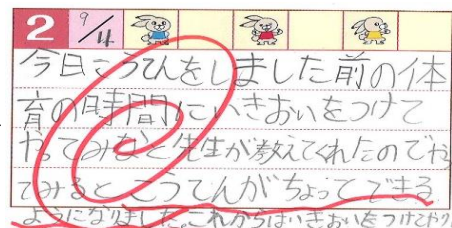 2 9/14
今日こうてんをしました前の体
育の時間にいきおいをつけて
やってみなと先生が教えてくれたのでやっ
てみるとこうてんがちょってできる
ようになりました。これからはいきおいをつけて